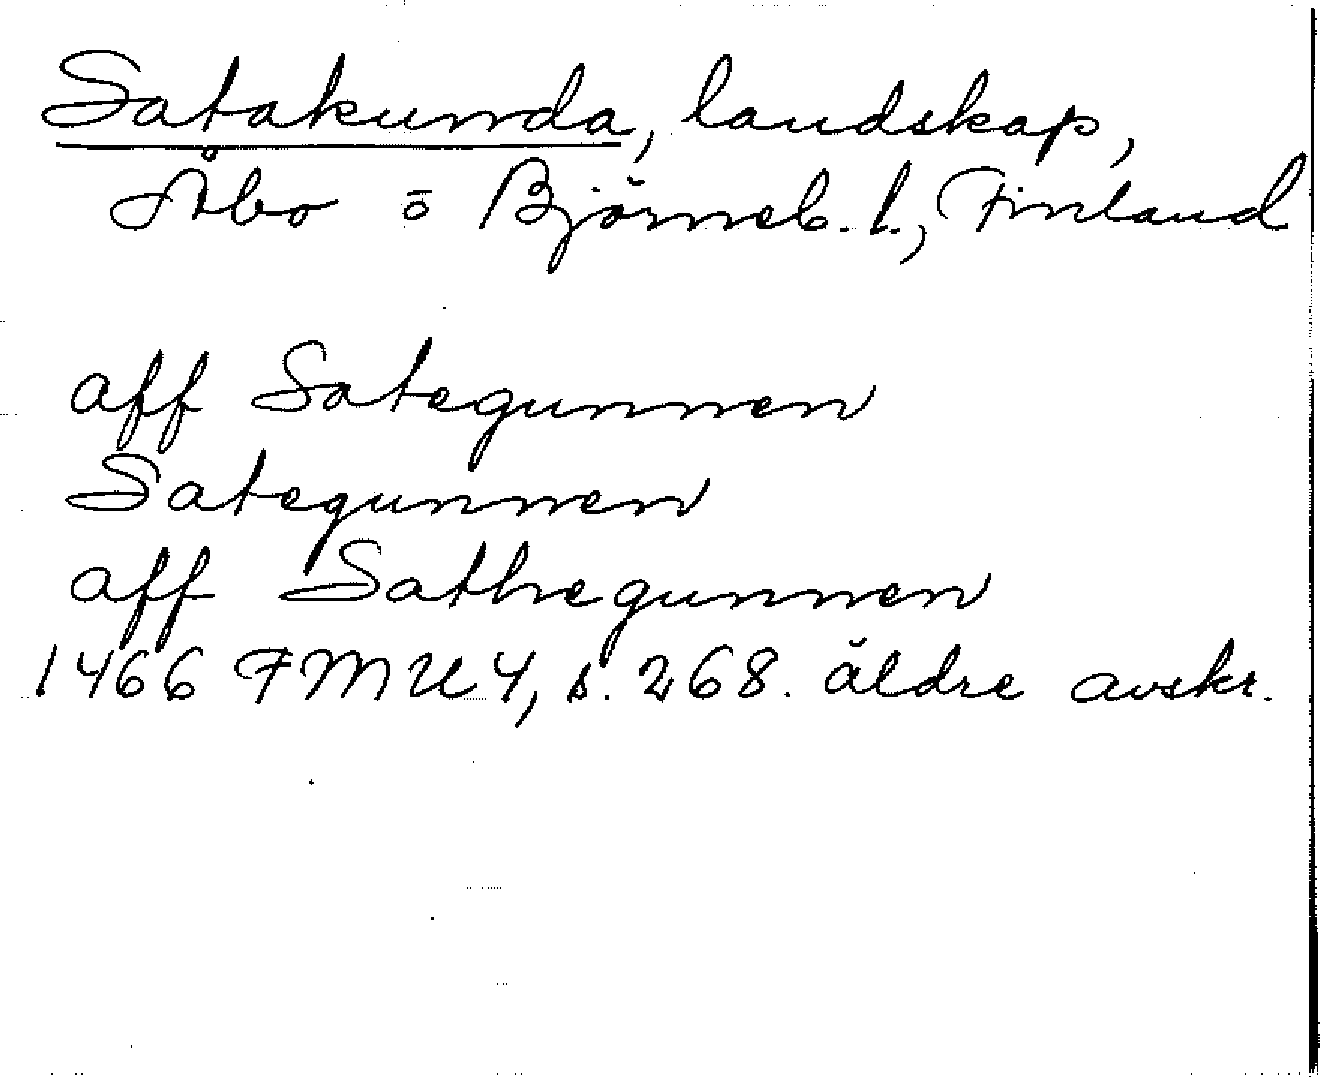 Satakunda, landskap,
Åbo o Björneb. l., Finland
aff Sategunnen
Sategunnen
aff Sathegunnen
1466 FMU 4, s. 268. äldre avskr.